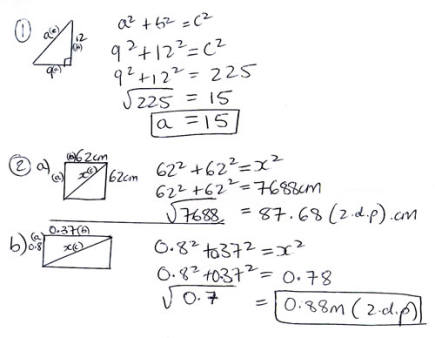 ① a(c) 12 (b) 9(a)
a² + b² = c²
9² + 12² = c²
9² + 12² = 225
√225 = 15
a = 15
② a) (b) 62cm (a) x(c) 62cm
62² + 62² = x²
62² + 62² = 7688cm
√7688 = 87.68 (2.d.p).cm
b) 0.37(b) (a) 0.8 x(c)
0.8² + 0.37² = x²
0.8² + 0.37² = 0.78
√0.7 = 0.88m (2.d.p)